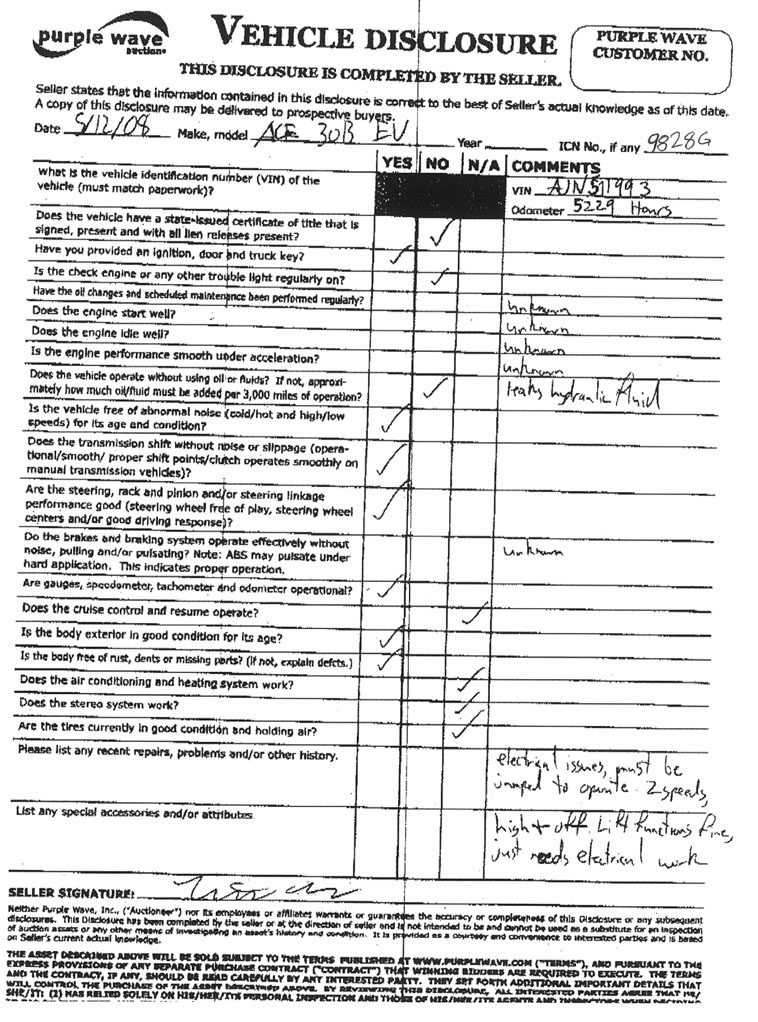 purple wave
auction
VEHICLE DISCLOSURE
PURPLE WAVE
CUSTOMER NO.
THIS DISCLOSURE IS COMPLETED BY THE SELLER.
Seller states that the information contained in this disclosure is correct to the best of Seller's actual knowledge as of this date.
A copy of this disclosure may be delivered to prospective buyers.
Date 5/12/08 Make, model 30B EV Year ICN No., if any 9828G
YES NO N/A COMMENTS
What is the vehicle identification number (VIN) of the
vehicle (must match paperwork)?
VIN AJN511993
Odometer 5229 Hours
Does the vehicle have a state-issued certificate of title that is
signed, present and with all lien releases present?
Have you provided an ignition, door and truck key?
Is the check engine or any other trouble light regularly on?
Have the oil changes and scheduled maintenance been performed regularly? unknown
Does the engine start well? unknown
Does the engine idle well? unknown
Is the engine performance smooth under acceleration? unknown
Does the vehicle operate without using oil or fluids? If not, approxi-
mately how much oil/fluid must be added per 3,000 miles of operation?
leaks hydraulic fluid
Is the vehicle free of abnormal noise (cold/hot and high/low
speeds) for its age and condition?
Does the transmission shift without noise or slippage (opera-
tional/smooth/ proper shift points/clutch operates smoothly on
manual transmission vehicles)?
Are the steering, rack and pinion and/or steering linkage
performance good (steering wheel free of play, steering wheel
centers and/or good driving response)?
Do the brakes and braking system operate effectively without
noise, pulling and/or pulsating? Note: ABS may pulsate under
hard application. This indicates proper operation.
unknown
Are gauges, speedometer, tachometer and odometer operational?
Does the cruise control and resume operate?
Is the body exterior in good condition for its age?
Is the body free of rust, dents or missing parts? (if not, explain defcts.)
Does the air conditioning and heating system work?
Does the stereo system work?
Are the tires currently in good condition and holding air?
Please list any recent repairs, problems and/or other history.
electrical issues, must be
jumped to operate - 2 speeds,
List any special accessories and/or attributes.
high + off. Lift functions fine,
just needs electrical work
SELLER SIGNATURE:
Neither Purple Wave, Inc., ("Auctioneer") nor its employees or affiliates warrants or guarantees the accuracy or completeness of this Disclosure or any subsequent
disclosures. This Disclosure has been completed by the seller or at the direction of seller and is not intended to be and cannot be used as a substitute for an inspection
of auction assets or any other means of investigating an asset's history and condition. It is provided as a courtesy and convenience to interested parties and is based
on Seller's current actual knowledge.
THE ASSET DESCRIBED ABOVE WILL BE SOLD SUBJECT TO THE TERMS PUBLISHED AT WWW.PURPLEWAVE.COM ("TERMS"), AND PURSUANT TO THE
EXPRESS PROVISIONS OF ANY SEPARATE PURCHASE CONTRACT ("CONTRACT") THAT WINNING BIDDERS ARE REQUIRED TO EXECUTE. THE TERMS
AND THE CONTRACT, IF ANY, SHOULD BE READ CAREFULLY BY ANY INTERESTED PARTY. THEY SET FORTH ADDITIONAL IMPORTANT DETAILS THAT
WILL CONTROL THE PURCHASE OF THE ASSET DESCRIBED ABOVE. BY REVIEWING THIS DISCLOSURE, ALL INTERESTED PARTIES AGREE THAT HE/
SHE/IT: (1) HAS RELIED SOLELY ON HIS/HER/ITS PERSONAL INSPECTION AND THOSE OF HIS/HER/ITS AGENTS AND INSPECTORS WHEN DECIDING